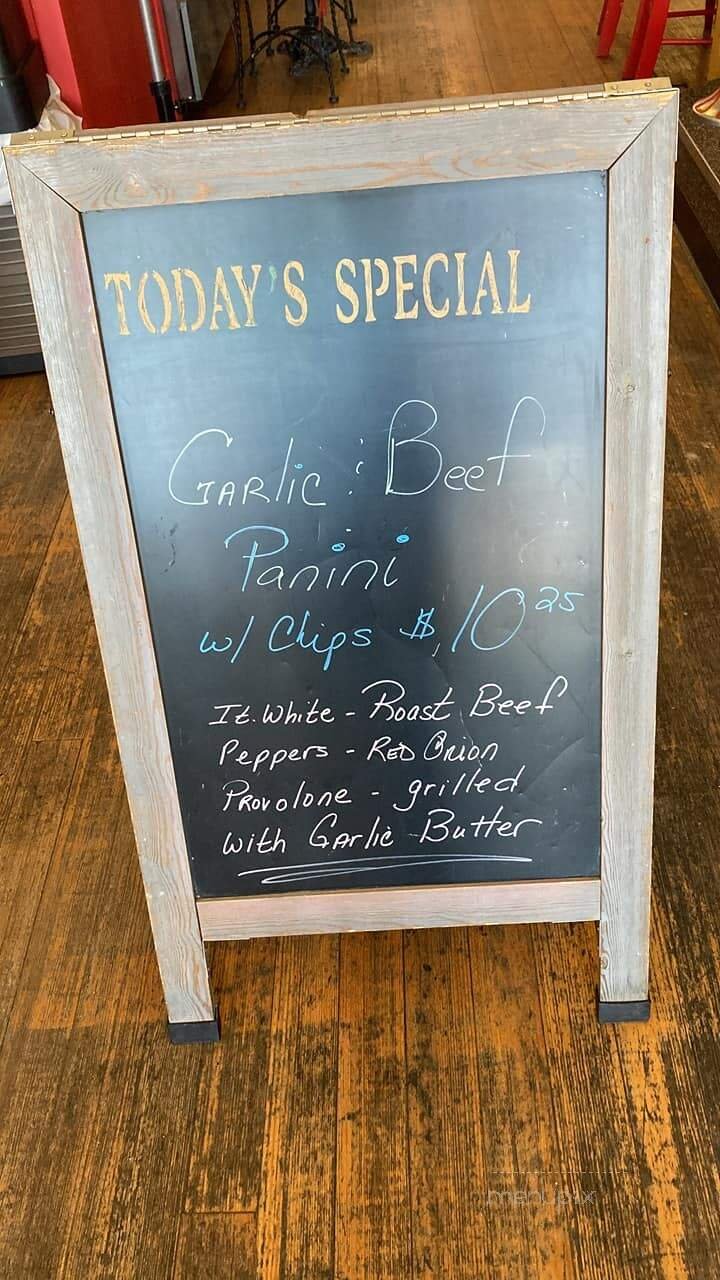 TODAY'S SPECIAL
GARlic : Beef
Panini
w/ Chips $ 10 25
It. White - Roast Beef
Peppers - RED ONION
PROVolone - grilled
with GARlic Butter
menupix